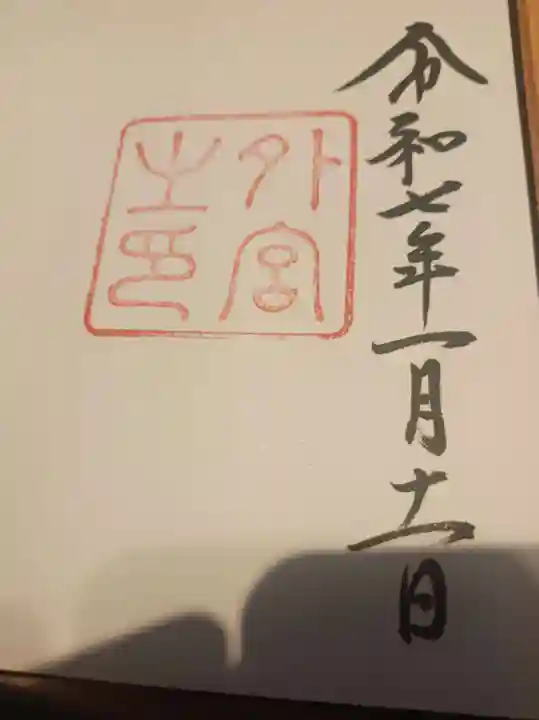 令和七年一月十一日
外宮
之印